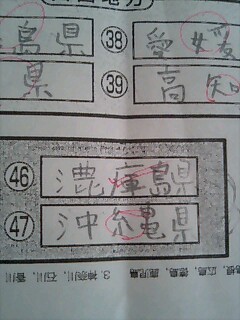 島県 ㊳ 愛媛
県 ㊴ 高知
㊻ 庫島県
㊼ 沖縄県
3. 神奈川, 石川, 香川
広島, 徳島, 鹿児島